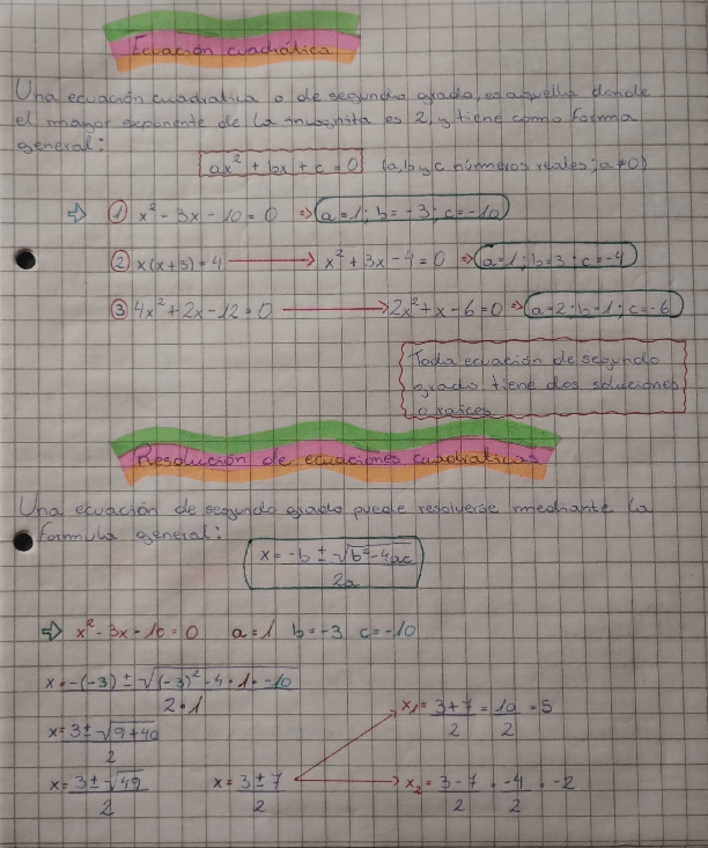 Ecuación cuadrática
Una ecuación cuadratica o de segundo grado, es aquella donde
el mayor exponente de la incognita es 2, y tiene como forma
general:
ax² + bx + c = 0 (a, b y c números reales; a ≠ 0)
⇒ ① x² - 3x - 10 = 0 ⇒ a=1; b=-3; c=-10
② x(x+3) = 4 → x² + 3x - 4 = 0 ⇒ a=1; b=3; c=-4
③ 4x² + 2x - 12 = 0 → 2x² + x - 6 = 0 ⇒ a=2; b=1; c=-6
Toda ecuación de segundo
grado tiene dos soluciones
o raíces
Resolución de ecuaciones cuadraticas
Una ecuación de segundo grado puede resolverse mediante la
formula general:
x = -b ± √b²-4ac
2a
⇒ x² - 3x - 10 = 0 a=1 b=-3 c=-10
x = -(-3) ± √(-3)² - 4 • 1 • -10
2 • 1
x₁ = 3+7 = 10 = 5
2 2
x = 3 ± √9+40
2
x = 3 ± √49 x = 3 ± 7 x₂ = 3-7 = -4 = -2
2 2 2 2